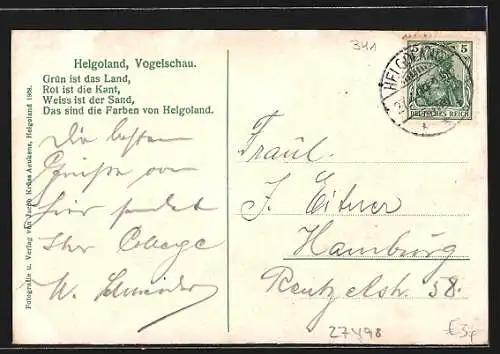 341
Helgoland, Vogelschau.
Grün ist das Land,
Rot ist die Kant,
Weiss ist der Sand,
Das sind die Farben von Helgoland.
Fotografie u. Verlag von Jacob Krüss Aeukens, Helgoland 1908.
5
DEUTSCHES REICH
HELGOLAND
Die besten
Grüße von
hier sendet
Ihr College
W. Schneider
Fräul.
J. Eitner
Hamburg
Rentzelstr. 58.
27498